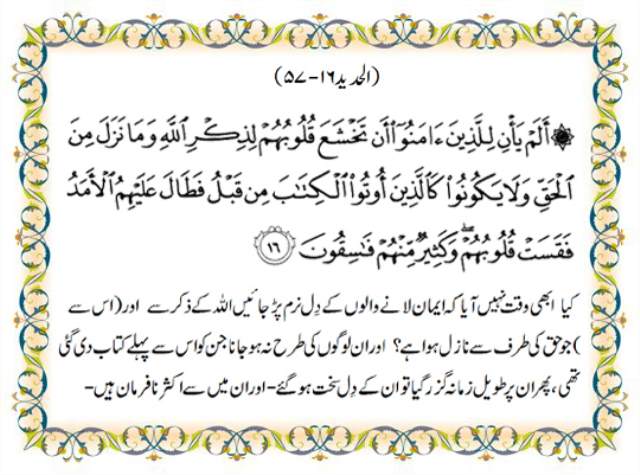 (الحدید ۱۶-۵۷)
۞ أَلَمۡ يَأۡنِ لِلَّذِينَ ءَامَنُوٓاْ أَن تَخۡشَعَ قُلُوبُهُمۡ لِذِكۡرِ ٱللَّهِ وَمَا نَزَلَ مِنَ
ٱلۡحَقِّ وَلَا يَكُونُواْ كَٱلَّذِينَ أُوتُواْ ٱلۡكِتَٰبَ مِن قَبۡلُ فَطَالَ عَلَيۡهِمُ ٱلۡأَمَدُ
فَقَسَتۡ قُلُوبُهُمۡۖ وَكَثِيرٞ مِّنۡهُمۡ فَٰسِقُونَ ١٦
کیا ابھی وقت نہیں آیا کہ ایمان لانے والوں کے دِل نرم پڑ جائیں اللہ کے ذکر سے اور (اس سے
) جو حق کی طرف سے نازل ہوا ہے؟ اور ان لوگوں کی طرح نہ ہو جانا جن کو اس سے پہلے کتاب دی گئی
تھی، پھر ان پر طویل زمانہ گزر گیا تو ان کے دِل سخت ہو گئے- اور ان میں سے اکثر نافرمان ہیں-